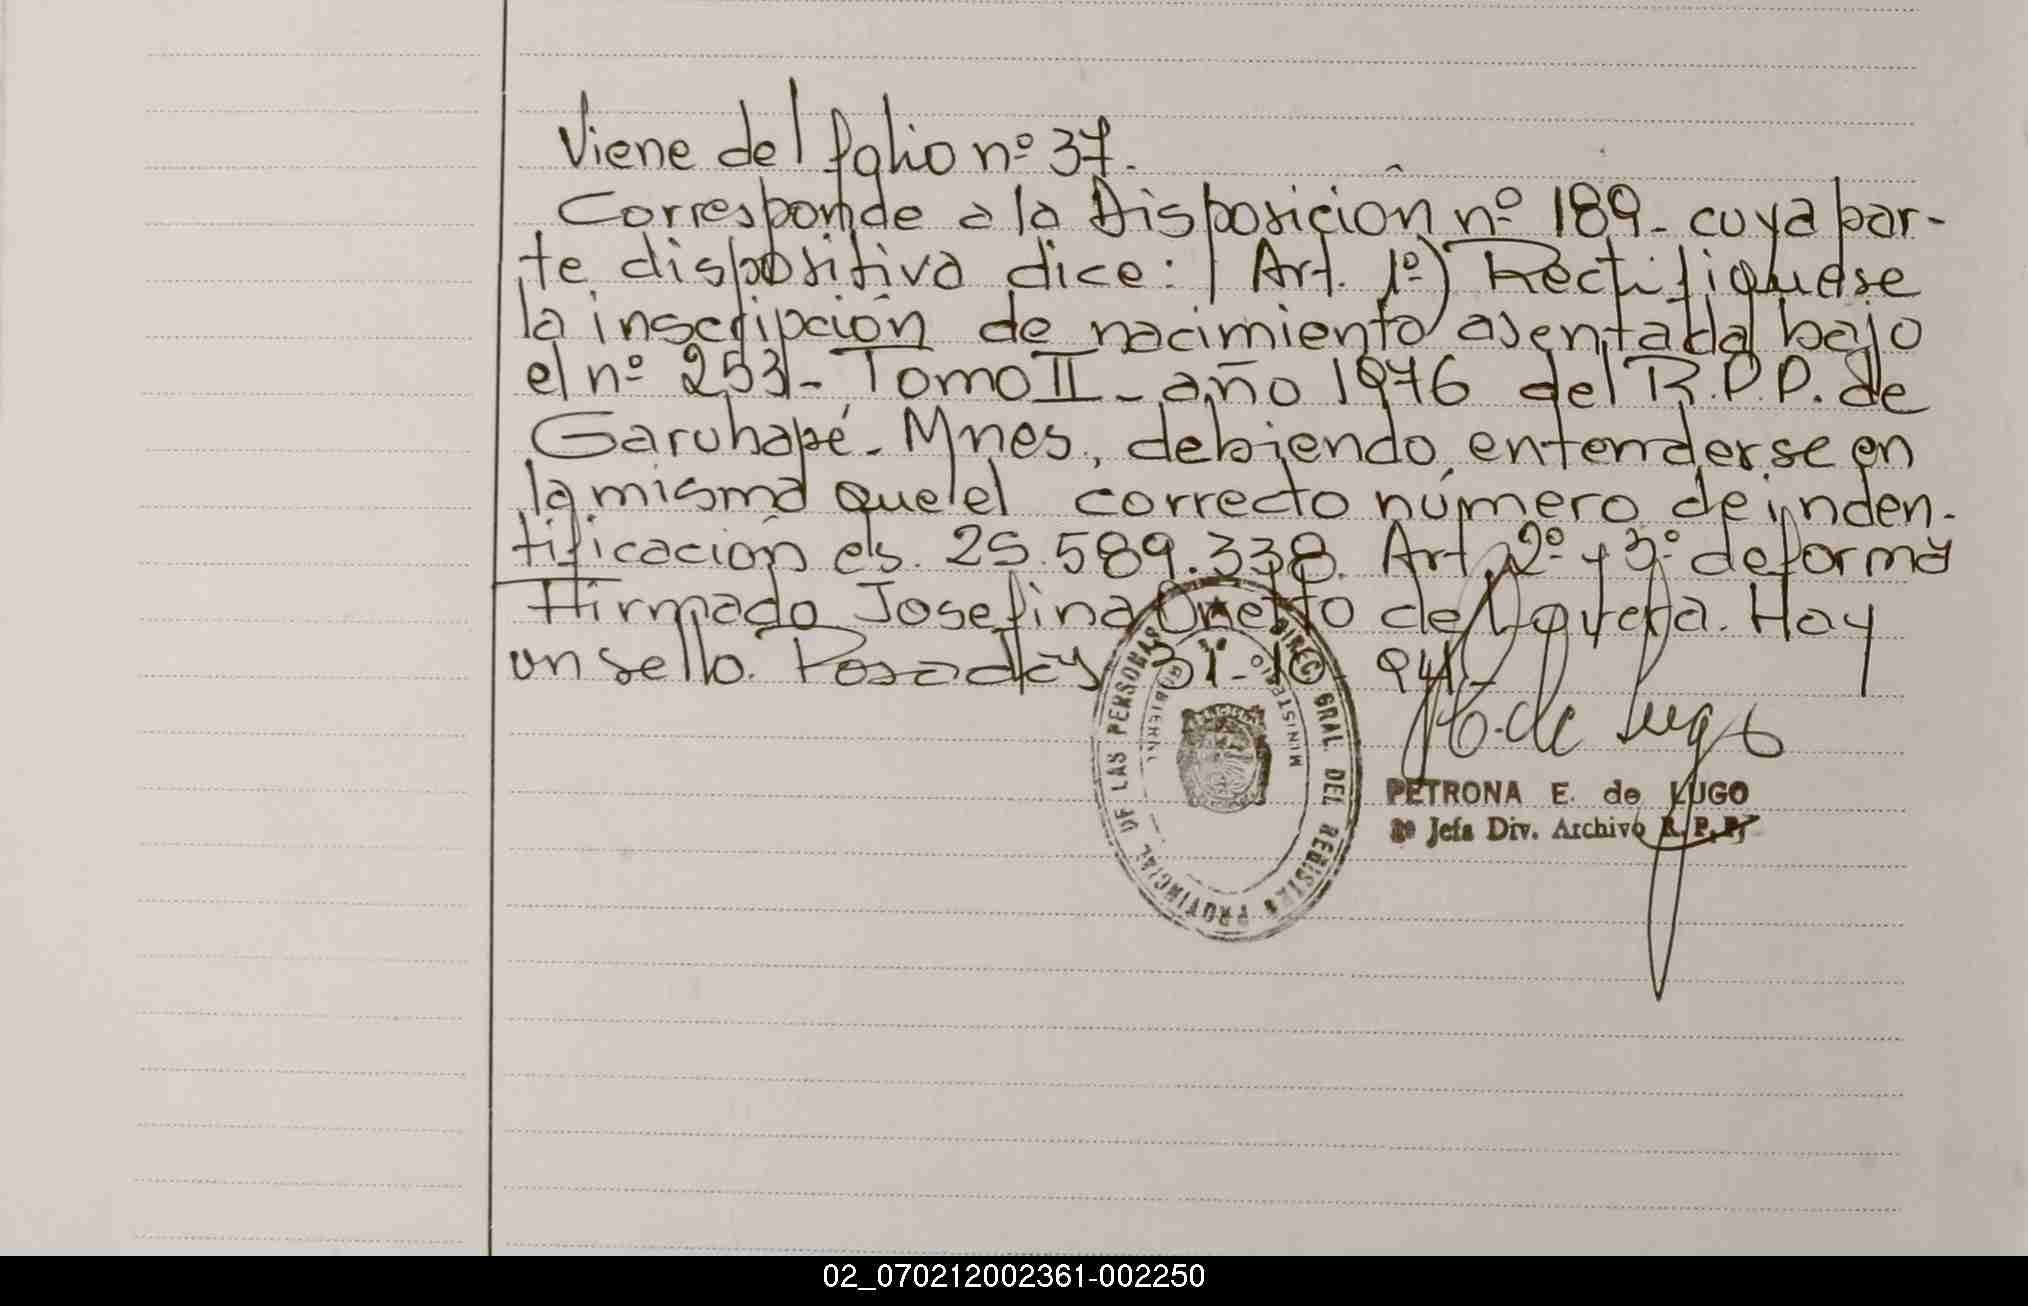 Viene del folio nº 37.
Corresponde a la Disposición nº 189 - cuya par-
te dispositiva dice: Art. 1º) Rectifiquese
la inscripción de nacimiento asentada bajo
el nº 253 - Tomo II - año 1976 del R.P.P. de
Garuhapé - Mnes, debiendo entenderse en
la misma que el correcto número de inden-
tificación es. 25.589.338. Art. 2º y 3º de forma
Firmado Josefina Onetto de
Hay
un sello. Posadas 31-10-94-
de Lugo
PETRONA E. de LUGO
Jefa Div. Archivo R. P. P.
DIREC. GRAL. DEL REGISTRO PROVINCIAL DE LAS PERSONAS
MINISTERIO
GOBIERNO
02_070212002361-002250